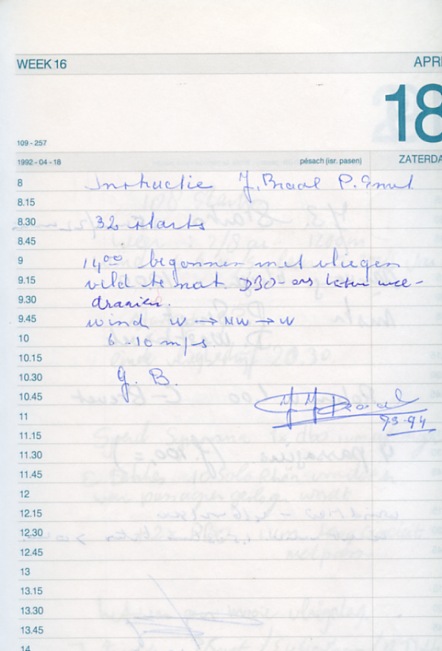 WEEK 16
APRI
18
109 - 257
1992 - 04 - 18
pésach (isr. pasen)
ZATERDA
8
Instructie J. Braal P. Smut
8.15
8.30
32 starts
8.45
9
14⁰⁰ begonnen met vliegen
9.15
veld te nat. DBO-ers laten mee-
9.30
draaien.
9.45
wind W → NW → W
10
6-10 m/s
10.15
10.30
G. B.
10.45
93-94
11
11.15
11.30
11.45
12
12.15
12.30
12.45
13
13.15
13.30
13.45
14